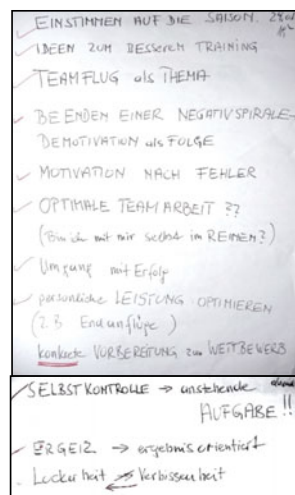 EINSTIMMEN AUF DIE SAISON.
IDEEN ZUM BESSEREN TRAINING
TEAMFLUG als THEMA
BEENDEN EINER NEGATIVSPIRALE-
DEMOTIVATION als FOLGE
MOTIVATION NACH FEHLER
OPTIMALE TEAMARBEIT ??
(Bin ich mit mir selbst im REINEN?)
Umgang mit Erfolg
persönliche LEISTUNG OPTIMIEREN
(z.B Endanflüge)
konkrete VORBEREITUNG zum WETTBEWERB
SELBSTKONTROLLE → anstehende
AUFGABE!!
ERGEIZ → ergebnisorientiert
Lockerheit Verbissenheit